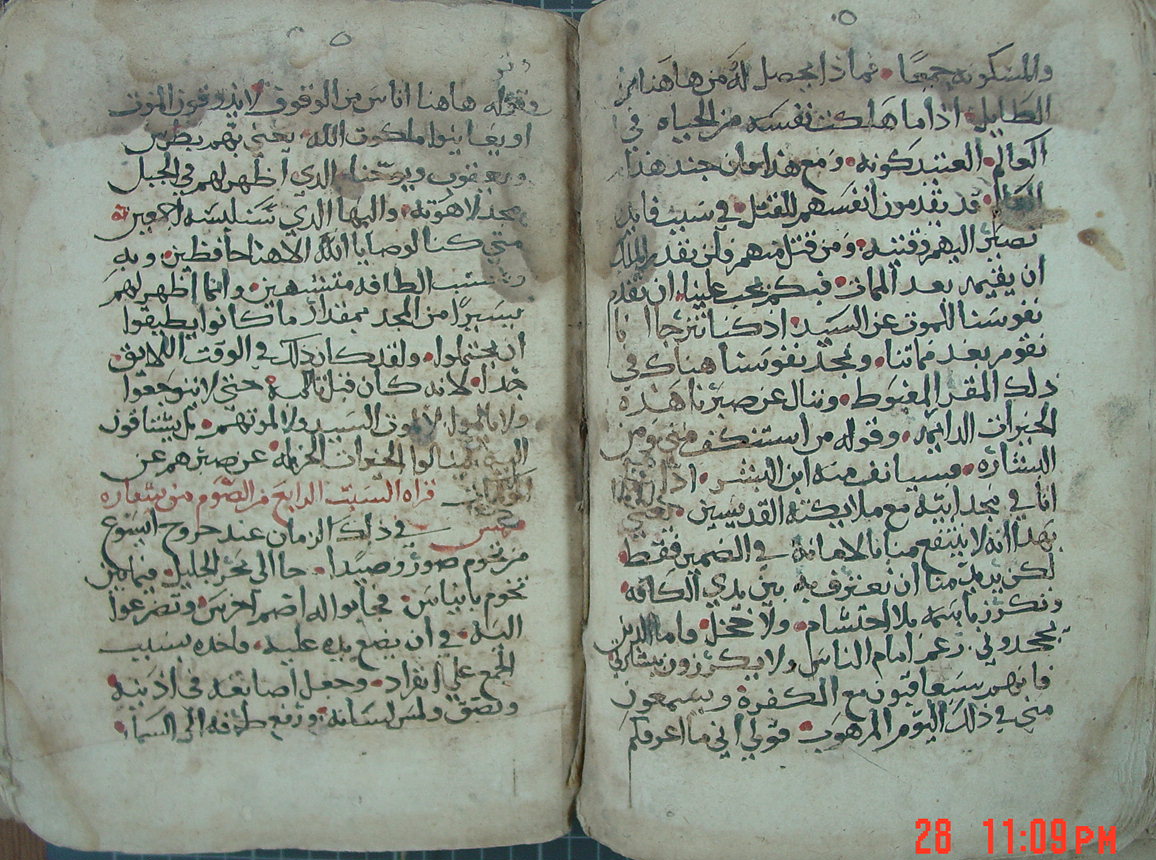 والمسكونه جميعًا. فماذا يحصل له من هاهنا من
الطايل. اذا ما هلكت نفسه من الحياه في
العالم العتيد كونه. ومع هذا فان جند هذا
العالم قد يقدمون انفسهم للقتل في سبب فايده
تصير اليهم وقتيه. ومن قتل منهم فلن يقدر الملك
ان يقيمه بعد الممات. فبكم يجب علينا ان نقدم
نفوسنا للموت عن السيد. اذ كنا نترجا انا
نقوم بعد مماتنا. ونجد نفوسنا هناك في
ذلك المقر المغبوط. وننال عن صبرنا هذه
الخيرات الدايمه. وقوله من استنكف مني ومن
البشاره. فسيانف منه ابن البشر. اذا
اتا في مجد ابيه مع ملايكته القديسين. يعني
بهذا انه لا ينتفع منا بالامانه في الضمير فقط.
لكن يريد منا ان نعترف به بين يدي الكافه.
ونكرز باسمه بلا احتشام. ولا خجل. فاما الذين
يجحدوني زعم امام الناس ولا يكرزون ببشارتي
فانهم يعاقبون مع الكفره ويسمعون
مني في ذلك اليوم المرهوب. قولي اني ما اعرفكم
وقوله هاهنا اناس من الوقوف لا يذوقون الموت
او يعاينوا ملكوت الله. يعني بهم بطرس
ويعقوب ويوحنا. الذي اظهر لهم في الجبل
مجد لاهوته. والبها الذي سنلبسه اجمعين
متى كنا لوصايا الله الاهنا حافظين. وبه
بحسب الطاقه متشبهين. وانما اظهر لهم
يسيرًا من المجد بمقدار ما كانوا يطيقوا
ان يحتملوا. ولقد كان ذلك في الوقت اللايق
جدا. لانه كان قبل تالمه. حتى لا يتوجعوا
ولا يالموا لا لموت السيد ولا لموتهم. بل يشتاقون
اليه لينالوا الخيرات الجزيله. عن صبرهم عن
قراه السبت الرابع من الصوم من بشاره
مرقس في ذلك الزمان عند خروج ايسوع
من تخوم صور وصيدا. جا الى بحر الجليل. فيما بين
تخوم بانياس. فجابوا اله اصم اخرس. وتضرعوا
اليه. في ان يضع يده عليه. واخده بسبب
الجمع على انفراد. وجعل اصابعه في اذنيه
وبصق ولمس لسانه. ورفع طرفه الى السما.
28 11:09 PM